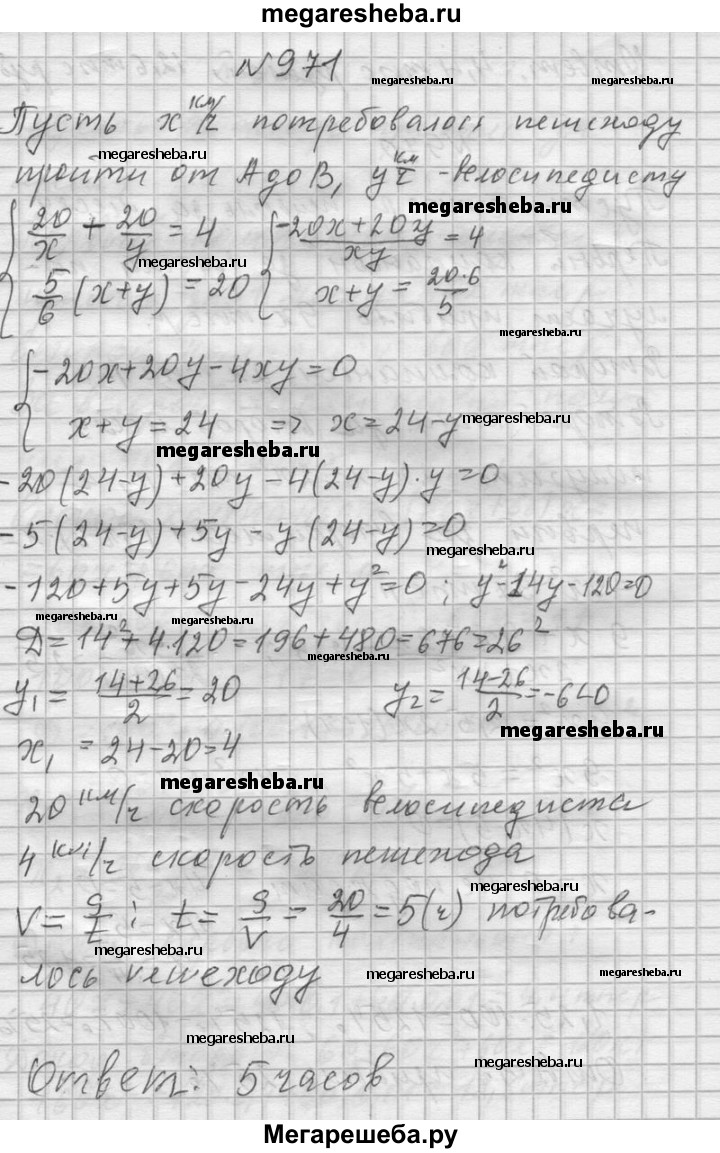 megaresheba.ru
№971
megaresheba.ru
Пусть x км/ч потребовалось пешеходу
megaresheba.ru
пройти от А до В, y км/ч - велосипедисту
megaresheba.ru
20/x - 20/y = 4   -20x+20y/xy = 4
megaresheba.ru
5/6 (x+y) = 20   x+y = 20·6/5
megaresheba.ru
-20x+20y-4xy=0
x+y=24 => x=24-y
megaresheba.ru
-20(24-y)+20y-4(24-y)·y=0
-5(24-y)+5y-y(24-y)=0
megaresheba.ru
-120+5y+5y-24y+y²=0; y²-14y-120=0
megaresheba.ru megaresheba.ru
Д=14²+4·120=196+480=676=26²
megaresheba.ru
y₁= 14+26/2 = 20   y₂= 14-26/2 =-6<0
megaresheba.ru
x₁ =24-20=4
megaresheba.ru
20 км/ч скорость велосипедиста
4 км/ч скорость пешехода
megaresheba.ru
V= S/t; t= S/V = 20/4 =5(ч) потребова-
megaresheba.ru
лось пешеходу
megaresheba.ru megaresheba.ru
megaresheba.ru
megaresheba.ru
Ответ: 5 часов
Мегарешеба.ру